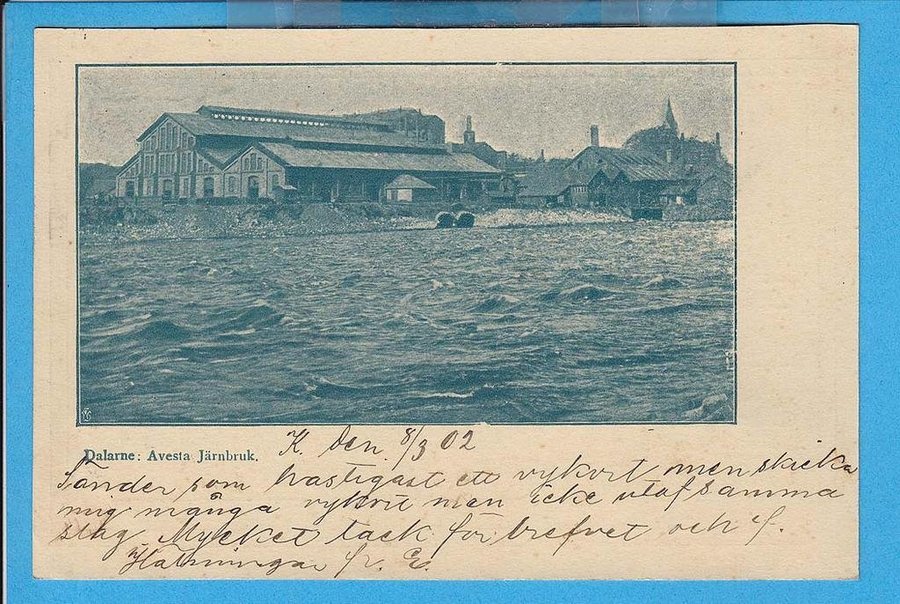 Dalarne: Avesta Järnbruk.
K. den. 8/3 02
Sänder som hastigast ett vykort men skicka
mig många vykort men icke utaf samma
slag. Mycket tack för brefvet och f.
Hälsningar fr. E.